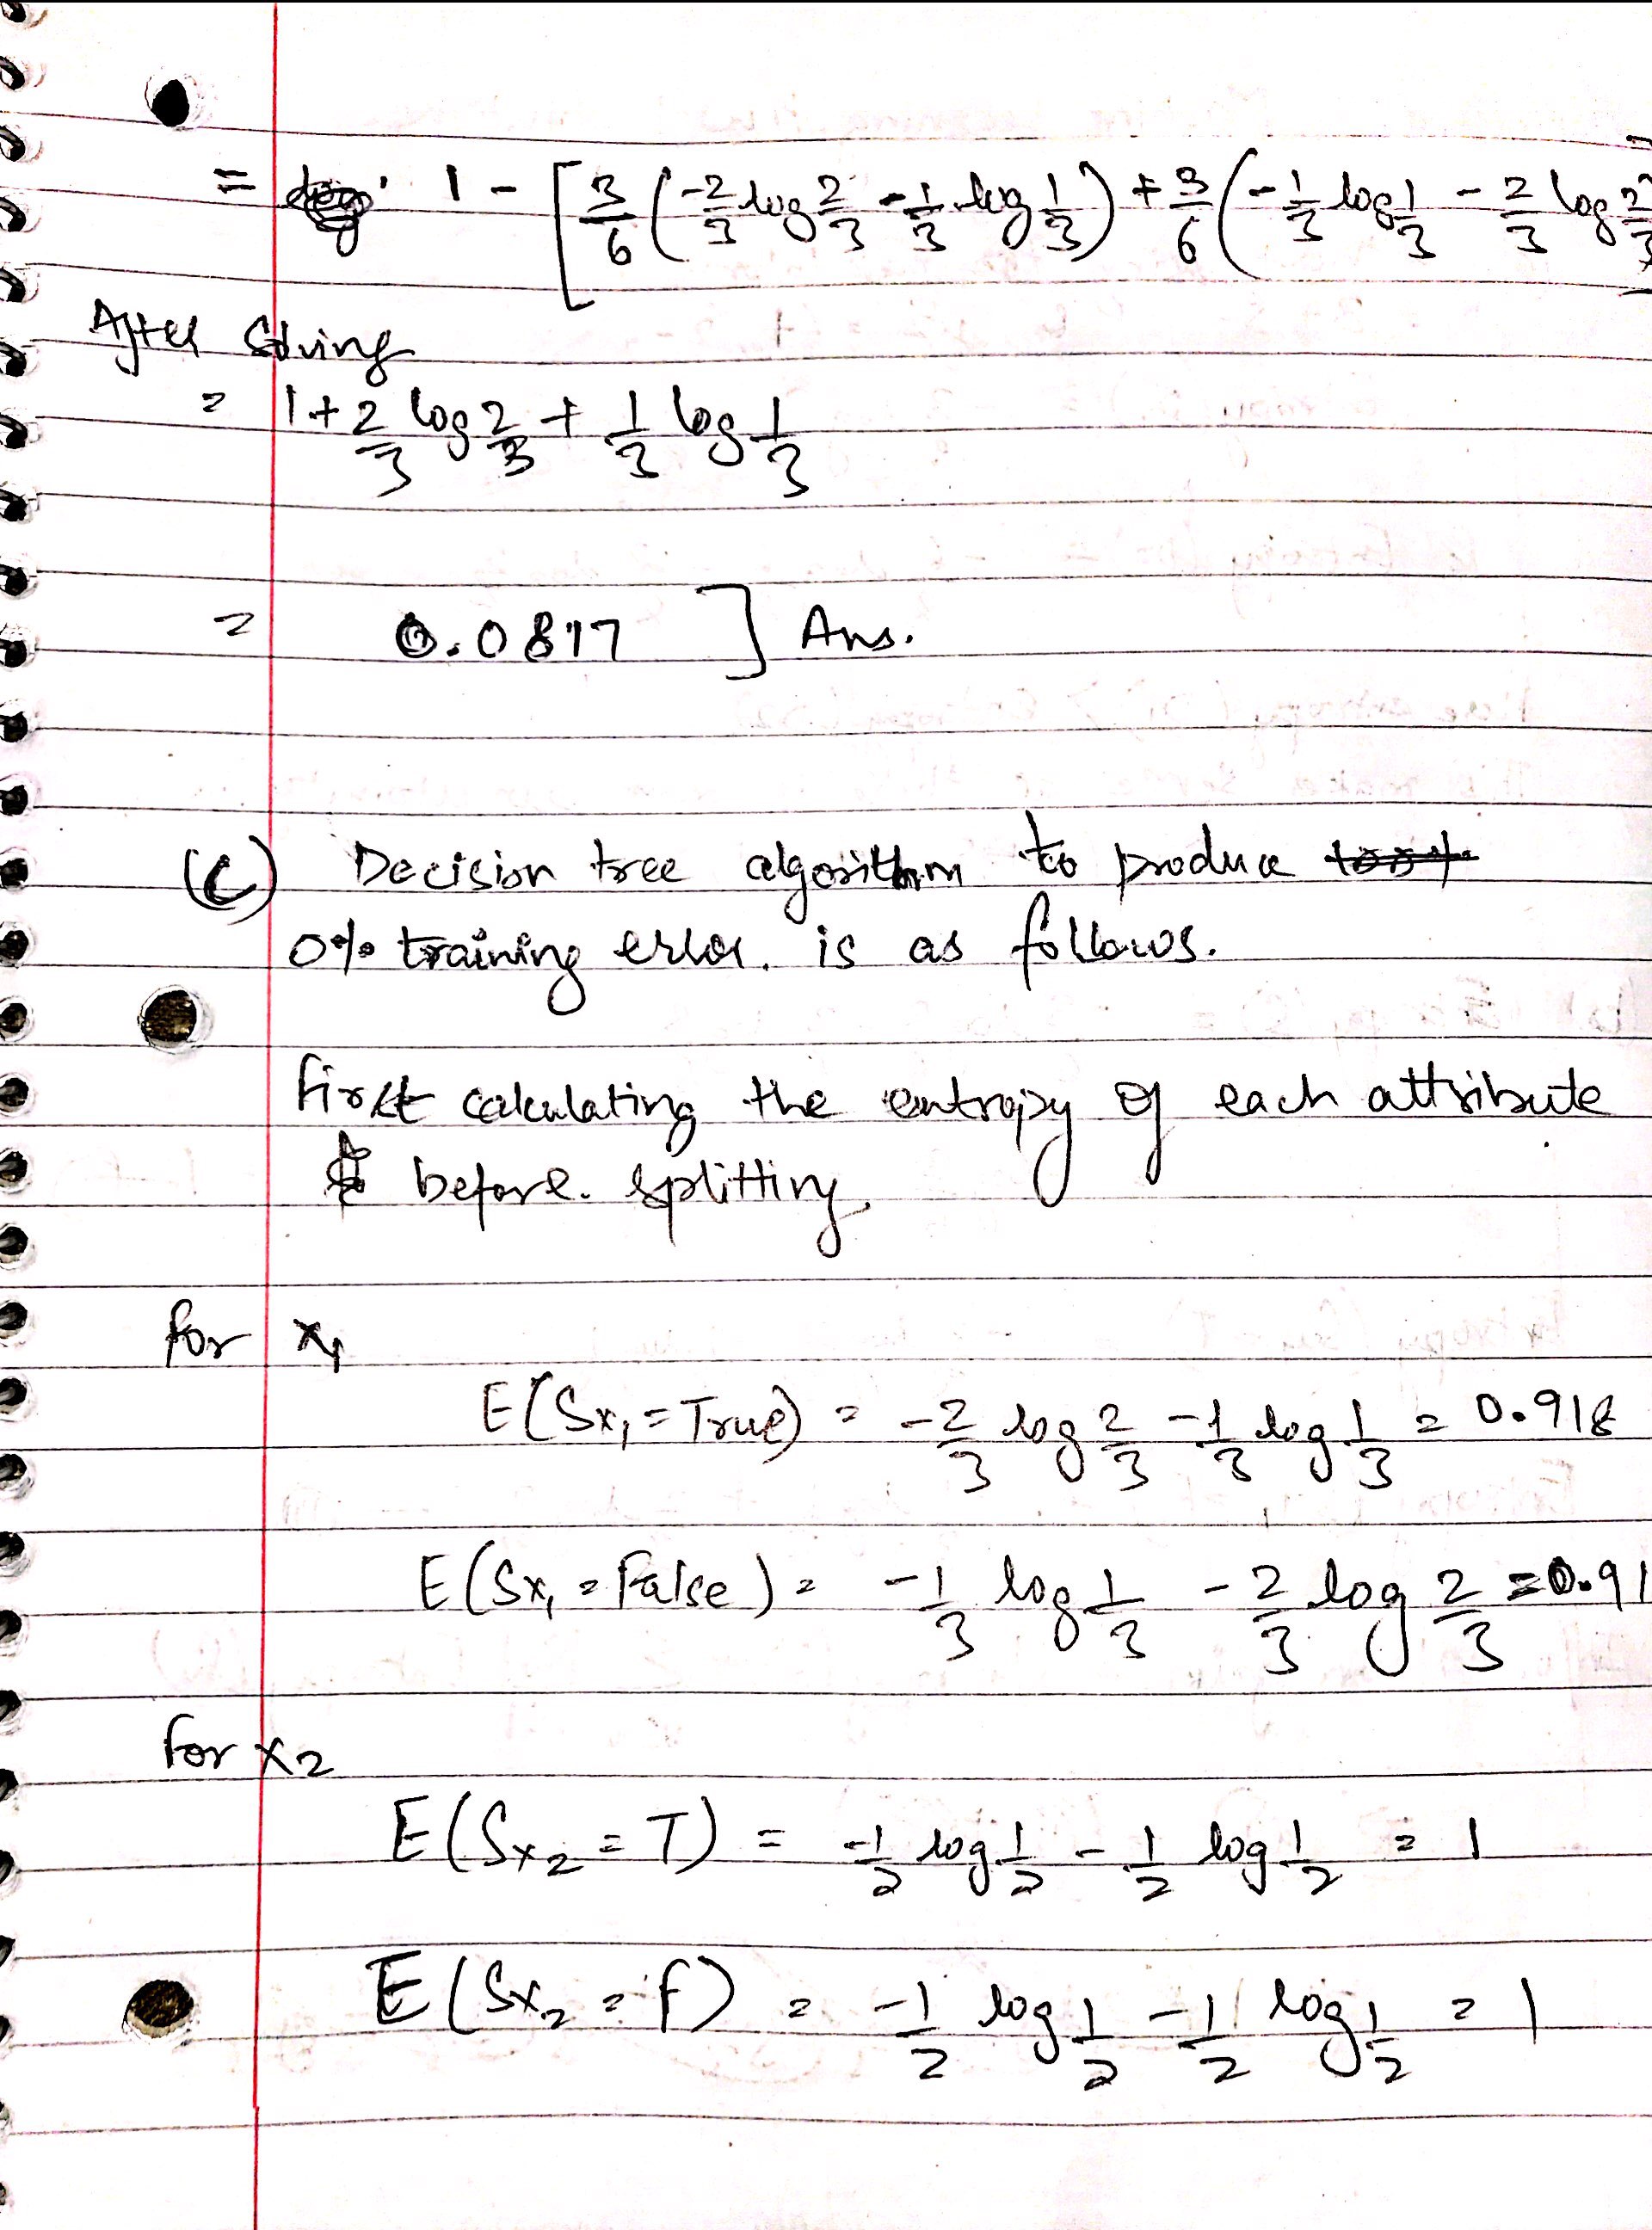 = 1 - [ 3/6 ( -2/3 log 2/3 - 1/3 log 1/3 ) + 3/6 ( -1/3 log 1/3 - 2/3 log 2/3
After Solving
= 1 + 2/3 log 2/3 + 1/3 log 1/3
= 0.0817 ] Ans.
(C) Decision tree algorithm to produce
0% training error. is as follows.
first calculating the entropy of each attribute
before. splitting.
for x1
E(Sx1 = True) = -2/3 log 2/3 - 1/3 log 1/3 = 0.918
E(Sx1 = False) = -1/3 log 1/3 - 2/3 log 2/3 = 0.91
for x2
E(Sx2 = T) = -1/2 log 1/2 - 1/2 log 1/2 = 1
E(Sx2 = F) = -1/2 log 1/2 - 1/2 log 1/2 = 1